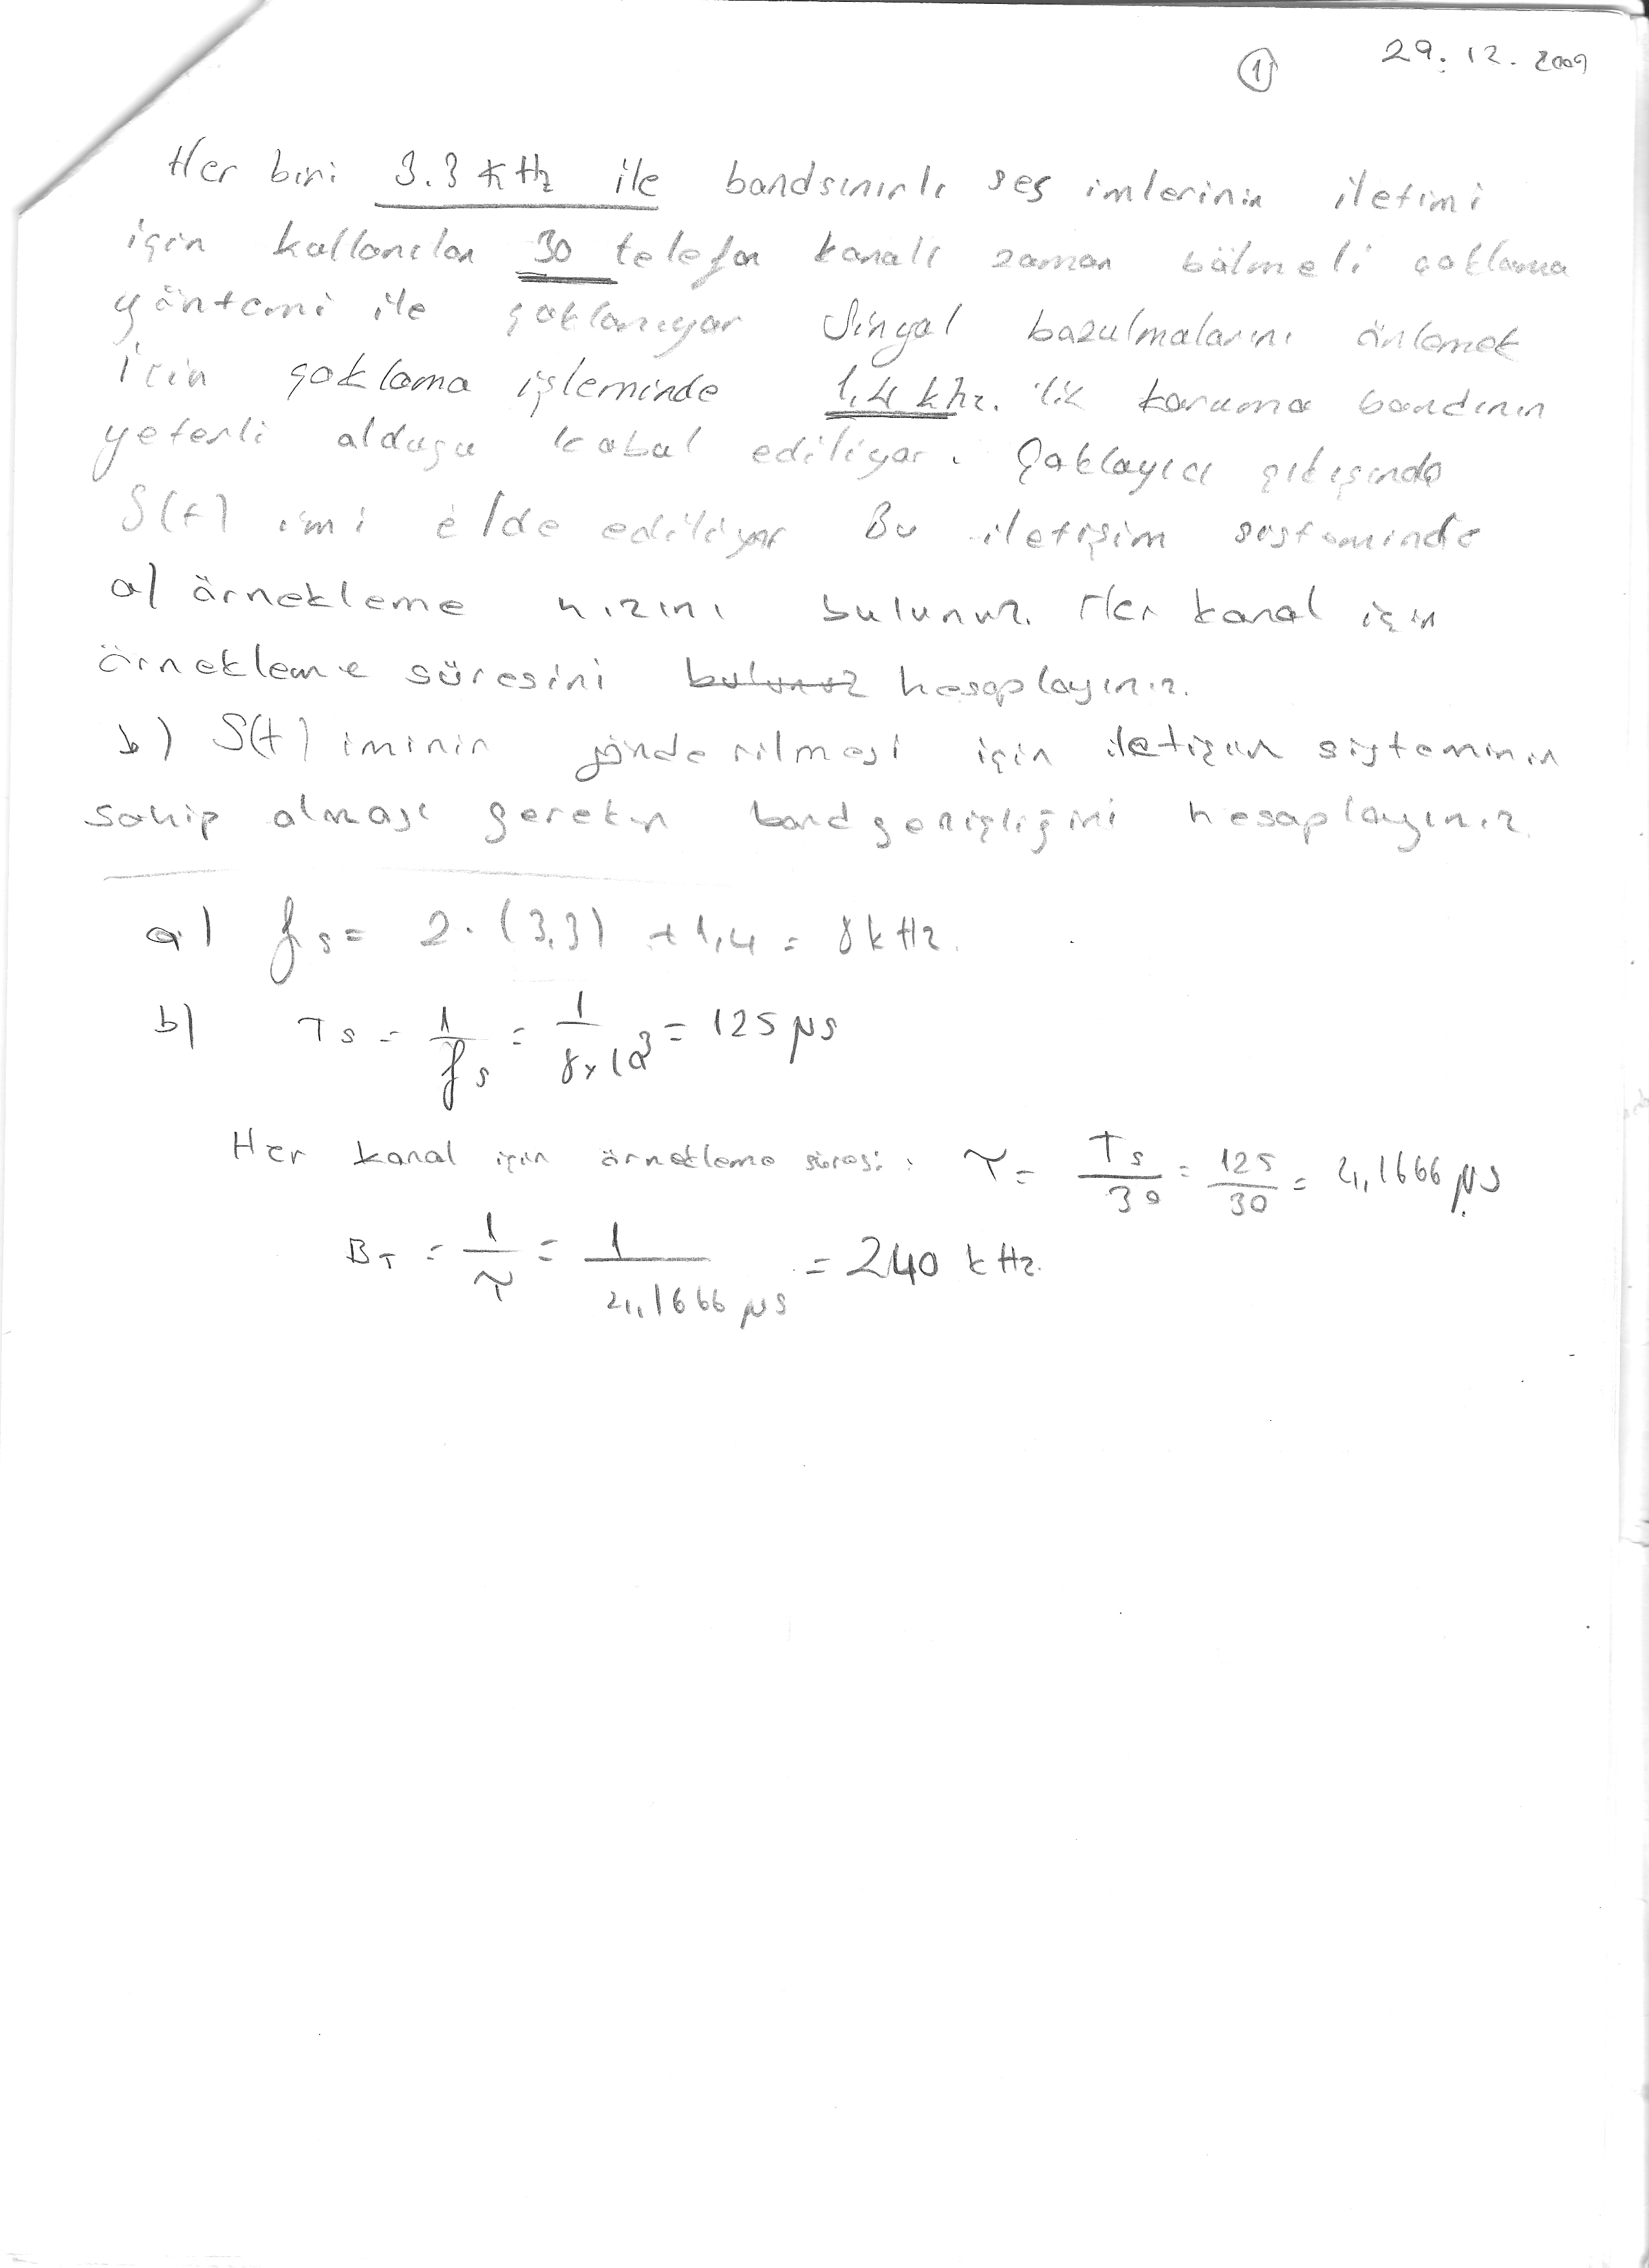 ① 29.12.2009
Her biri 3.3 kHz ile bandsınırlı ses imlerinin iletimi
için kullanılan 30 telefon kanalı zaman bölmeli çoklama
yöntemi ile çoklanıyor Sinyal bozulmalarını önlemek
için çoklama işleminde 1,4 khz. 'lik koruma bandının
yeterli olduğu kabul ediliyor. Çoklayıcı çıkışında
S(t) imi elde ediliyor Bu iletişim sisteminde
a) örnekleme hızını bulunuz. Her kanal için
örnekleme süresini bulunuz hesaplayınız.
b) S(t) iminin gönderilmesi için iletişim sisteminin
sahip olması gereken band genişliğini hesaplayınız.
a) fs = 2.(3,3) + 1,4 = 8 kHz.
b) Ts = 1/fs = 1/8x10³ = 125 µs
Her kanal için örnekleme süresi: τ = Ts/30 = 125/30 = 4,1666 µs
BT = 1/τ = 1/4,1666 µs = 240 kHz.